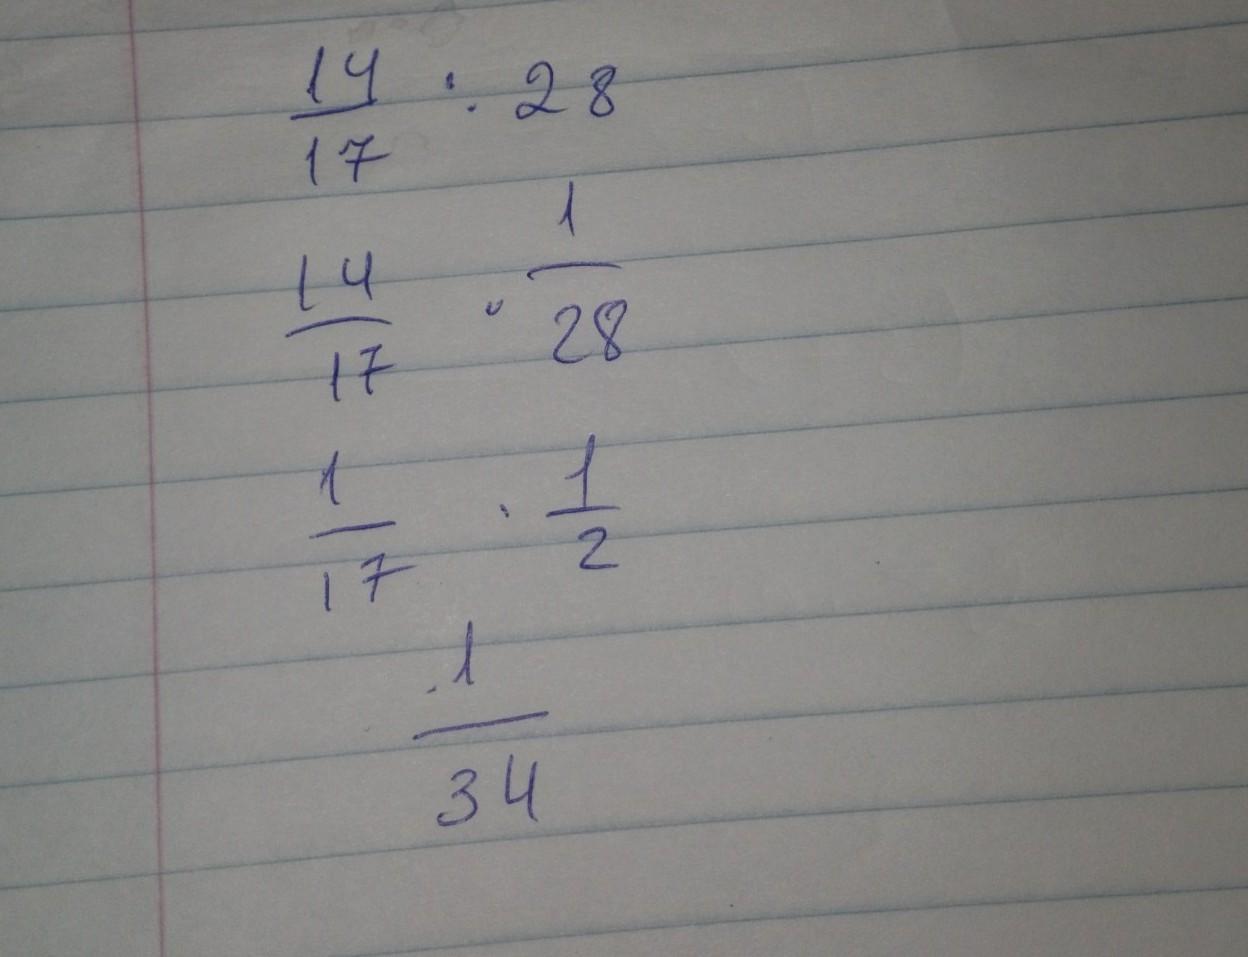 14/17 : 28
14/17 · 1/28
1/17 · 1/2
1/34